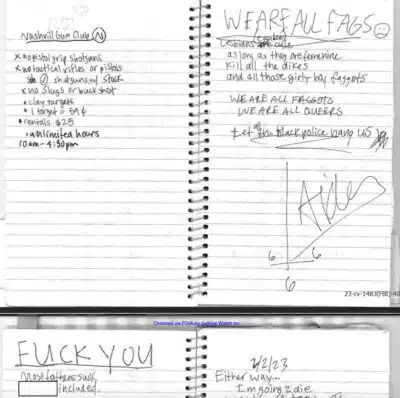 Nashvill Gun Club
x no pistol grip shotguns
x no tactical rifles or pistols
shotguns w/ stock
x no slugs or buck shot
• clay targets
• 1 target = 59¢
• rentals $25
• unlimited hours
10am - 4:30pm
WE ARE ALL FAGS
Lesbians
as long as they are feminine
Kill all the dikes
and all those girly boy faggots
WE ARE ALL FAGGOTS
WE ARE ALL QUEERS
Let all the black police hang us
Aiden
6 6
6
23-cv-1483(FBI)-40
Obtained via FOIA by Judicial Watch Inc.
FUCK YOU
Most fathers suck
included.
2/2/23
Either way...
I'm going 2 die